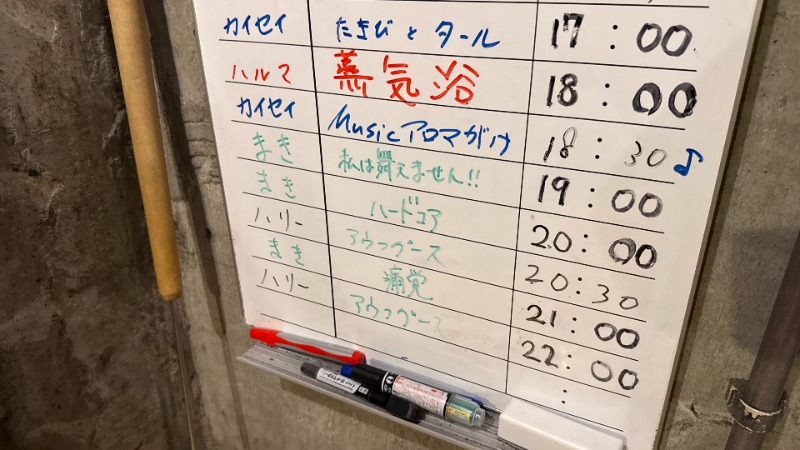 カイセイ たきびとタール 17:00
ハルマ 蒸気浴 18:00
カイセイ Musicアロマがけ 18:30♪
まき 私は舞えません!! 19:00
まき ハードコア 20:00
ハリー アウフグース 20:30
まき 痛覚 21:00
ハリー アウフグース 22:00
: